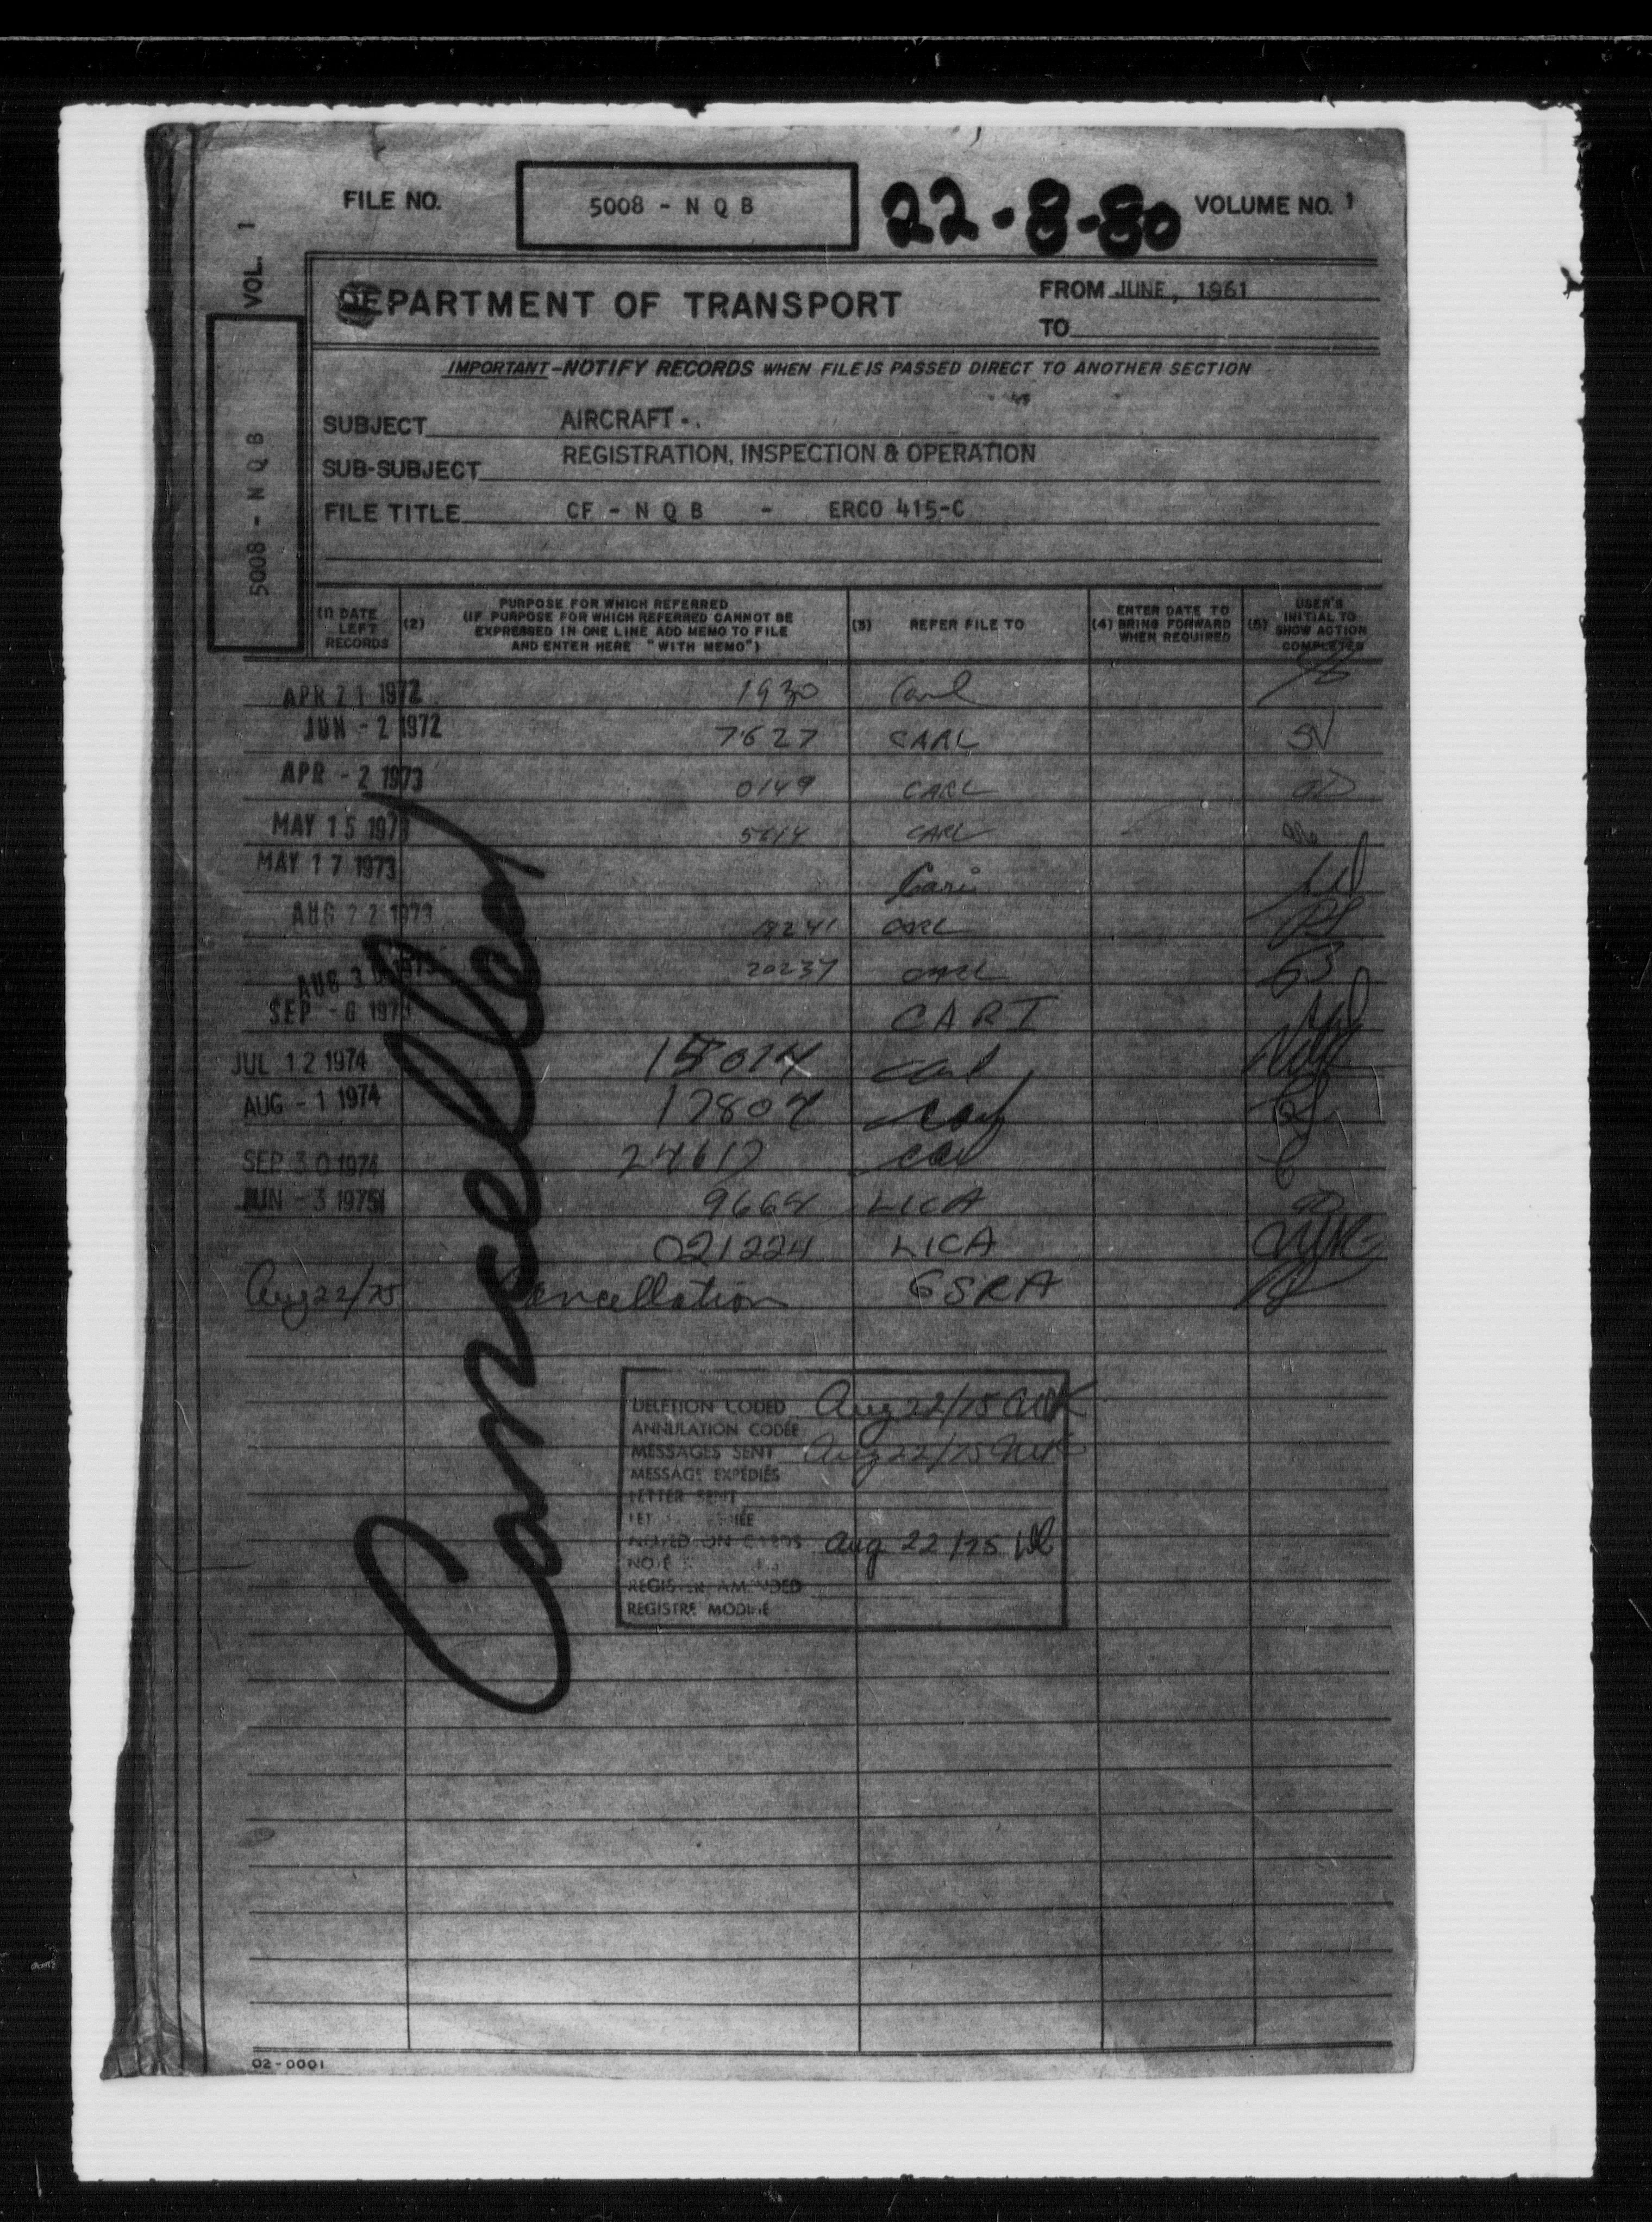 FILE NO. 5008 - N Q B 22-8-80 VOLUME NO. 1
VOL. 1
5008 - N Q B
DEPARTMENT OF TRANSPORT
FROM JUNE, 1961
TO
IMPORTANT-NOTIFY RECORDS WHEN FILE IS PASSED DIRECT TO ANOTHER SECTION
SUBJECT AIRCRAFT -.
SUB-SUBJECT REGISTRATION, INSPECTION & OPERATION
FILE TITLE CF - N Q B - ERCO 415-C
(1) DATE LEFT RECORDS
(2) PURPOSE FOR WHICH REFERRED
(IF PURPOSE FOR WHICH REFERRED CANNOT BE
EXPRESSED IN ONE LINE ADD MEMO TO FILE
AND ENTER HERE "WITH MEMO")
(3) REFER FILE TO
(4) ENTER DATE TO BRING FORWARD WHEN REQUIRED
(5) USER'S INITIAL TO SHOW ACTION COMPLETED
APR 21 1972 1930 Carl
JUN - 2 1972 7627 CARL
APR - 2 1973 0149 CARL
MAY 15 1973 CARL
MAY 17 1973
AUG 22 1973 CARL
AUG 30 1973 20237 CARL
SEP - 6 1973 CARI
JUL 12 1974 Carl
AUG - 1 1974 17804
SEP 30 1974 24617
JUN - 3 1975 9664 LICA
021224 LICA
Aug 22/75 Cancellation GSRA
Cancelled
DELETION CODED Aug 22/75
ANNULATION CODÉE
MESSAGES SENT Aug 22/75
MESSAGE EXPÉDIÉS
LETTER SENT
NOTED ON CARDS Aug 22/75
REGISTER AMENDED
REGISTRE MODIFIÉ
02-0001